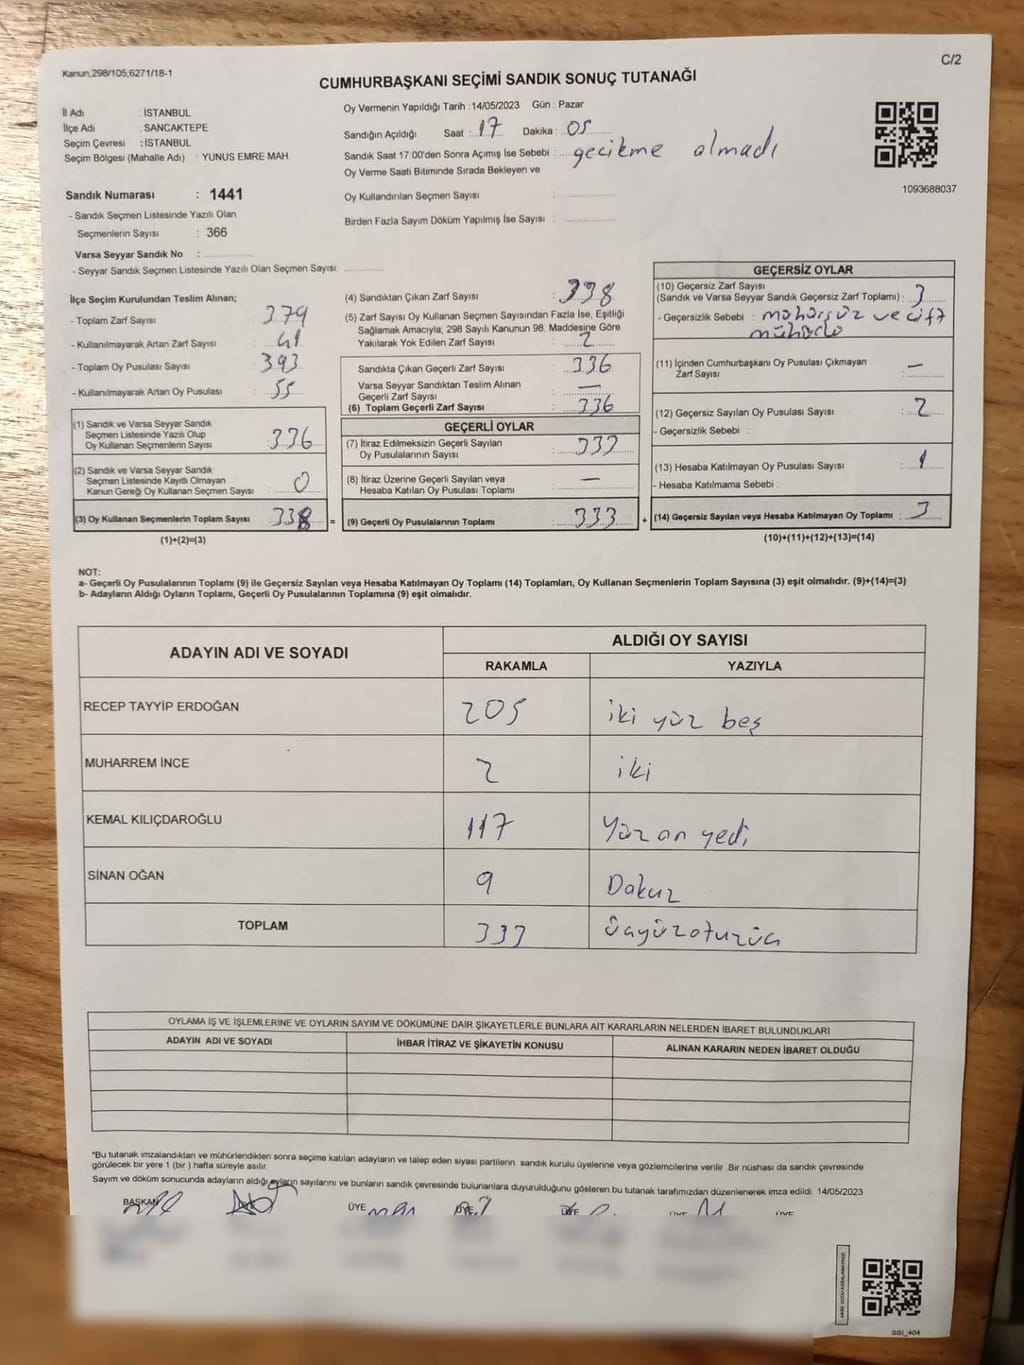 Kanun;298/105;6271/18-1
C/2
CUMHURBAŞKANI SEÇİMİ SANDIK SONUÇ TUTANAĞI
İl Adı : İSTANBUL
İlçe Adı : SANCAKTEPE
Seçim Çevresi : İSTANBUL
Seçim Bölgesi (Mahalle Adı) : YUNUS EMRE MAH.
Oy Vermenin Yapıldığı Tarih :14/05/2023 Gün : Pazar
Sandığın Açıldığı Saat : 17 Dakika : 05
Sandık Saat 17:00'den Sonra Açımış İse Sebebi : gecikme olmadı
Oy Verme Saati Bitiminde Sırada Bekleyen ve
Oy Kullandırılan Seçmen Sayısı :
Birden Fazla Sayım Döküm Yapılmış İse Sayısı :
1093688037
Sandık Numarası : 1441
- Sandık Seçmen Listesinde Yazılı Olan
Seçmenlerin Sayısı : 366
Varsa Seyyar Sandık No :
- Seyyar Sandık Seçmen Listesinde Yazılı Olan Seçmen Sayısı:
İlçe Seçim Kurulundan Teslim Alınan;
- Toplam Zarf Sayısı : 379
- Kullanılmayarak Artan Zarf Sayısı : 41
- Toplam Oy Pusulası Sayısı : 393
- Kullanılmayarak Artan Oy Pusulası : 55
(1) Sandık ve Varsa Seyyar Sandık
Seçmen Listesinde Yazılı Olup
Oy Kullanan Seçmenlerin Sayısı : 336
(2) Sandık ve Varsa Seyyar Sandık
Seçmen Listesinde Kayıtlı Olmayan
Kanun Gereği Oy Kullanan Seçmen Sayısı : 0
(3) Oy Kullanan Seçmenlerin Toplam Sayısı : 338 =
(1)+(2)=(3)
(4) Sandıktan Çıkan Zarf Sayısı : 338
(5) Zarf Sayısı Oy Kullanan Seçmen Sayısından Fazla İse, Eşitliği
Sağlamak Amacıyla; 298 Sayılı Kanunun 98. Maddesine Göre
Yakılarak Yok Edilen Zarf Sayısı : 2
Sandıkta Çıkan Geçerli Zarf Sayısı : 336
Varsa Seyyar Sandıktan Teslim Alınan
Geçerli Zarf Sayısı : —
(6) Toplam Geçerli Zarf Sayısı : 336
GEÇERLİ OYLAR
(7) İtiraz Edilmeksizin Geçerli Sayılan
Oy Pusulalarının Sayısı : 333
(8) İtiraz Üzerine Geçerli Sayılan veya
Hesaba Katılan Oy Pusulası Toplamı : —
(9) Geçerli Oy Pusulalarının Toplamı : 333 +
GEÇERSİZ OYLAR
(10) Geçersiz Zarf Sayısı
(Sandık ve Varsa Seyyar Sandık Geçersiz Zarf Toplamı) : 3
- Geçersizlik Sebebi : mühürsüz ve çift
mühürlü
(11) İçinden Cumhurbaşkanı Oy Pusulası Çıkmayan
Zarf Sayısı : —
(12) Geçersiz Sayılan Oy Pusulası Sayısı : 2
- Geçersizlik Sebebi :
(13) Hesaba Katılmayan Oy Pusulası Sayısı : 1
- Hesaba Katılmama Sebebi :
(14) Geçersiz Sayılan veya Hesaba Katılmayan Oy Toplamı : 3
(10)+(11)+(12)+(13)=(14)
NOT:
a- Geçerli Oy Pusulalarının Toplamı (9) ile Geçersiz Sayılan veya Hesaba Katılmayan Oy Toplamı (14) Toplamları, Oy Kullanan Seçmenlerin Toplam Sayısına (3) eşit olmalıdır. (9)+(14)=(3)
b- Adayların Aldığı Oyların Toplamı, Geçerli Oy Pusulalarının Toplamına (9) eşit olmalıdır.
ADAYIN ADI VE SOYADI
ALDIĞI OY SAYISI
RAKAMLA YAZIYLA
RECEP TAYYİP ERDOĞAN 205 iki yüz beş
MUHARREM İNCE 2 iki
KEMAL KILIÇDAROĞLU 117 Yüz on yedi
SİNAN OĞAN 9 Dokuz
TOPLAM 333 üçyüzotuzüç
OYLAMA İŞ VE İŞLEMLERİNE VE OYLARIN SAYIM VE DÖKÜMÜNE DAİR ŞİKAYETLERLE BUNLARA AİT KARARLARIN NELERDEN İBARET BULUNDUKLARI
ADAYIN ADI VE SOYADI İHBAR İTİRAZ VE ŞİKAYETİN KONUSU ALINAN KARARIN NEDEN İBARET OLDUĞU
*Bu tutanak imzalandıktan ve mühürlendikten sonra seçime katılan adayların ve talep eden siyasi partilerin sandık kurulu üyelerine veya gözlemcilerine verilir .Bir nüshası da sandık çevresinde
görülecek bir yere 1 (bir ) hafta süreyle asılır.
Sayım ve döküm sonucunda adayların aldığı oyların sayılarını ve bunların sandık çevresinde bulunanlara duyurulduğunu gösteren bu tutanak tarafımızdan düzenlenerek imza edildi. 14/05/2023
BAŞKAN ÜYE ÜYE ÜYE ÜYE ÜYE
SSI_404